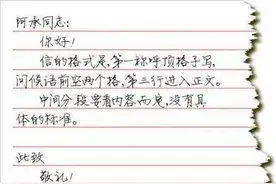 阿承同志：
你好！
信的格式是，第一称呼顶格子写，
问候语前空两个格，第三行进入正文。
中间分段要看内容而定，没有具
体的标准。
此致
敬礼！